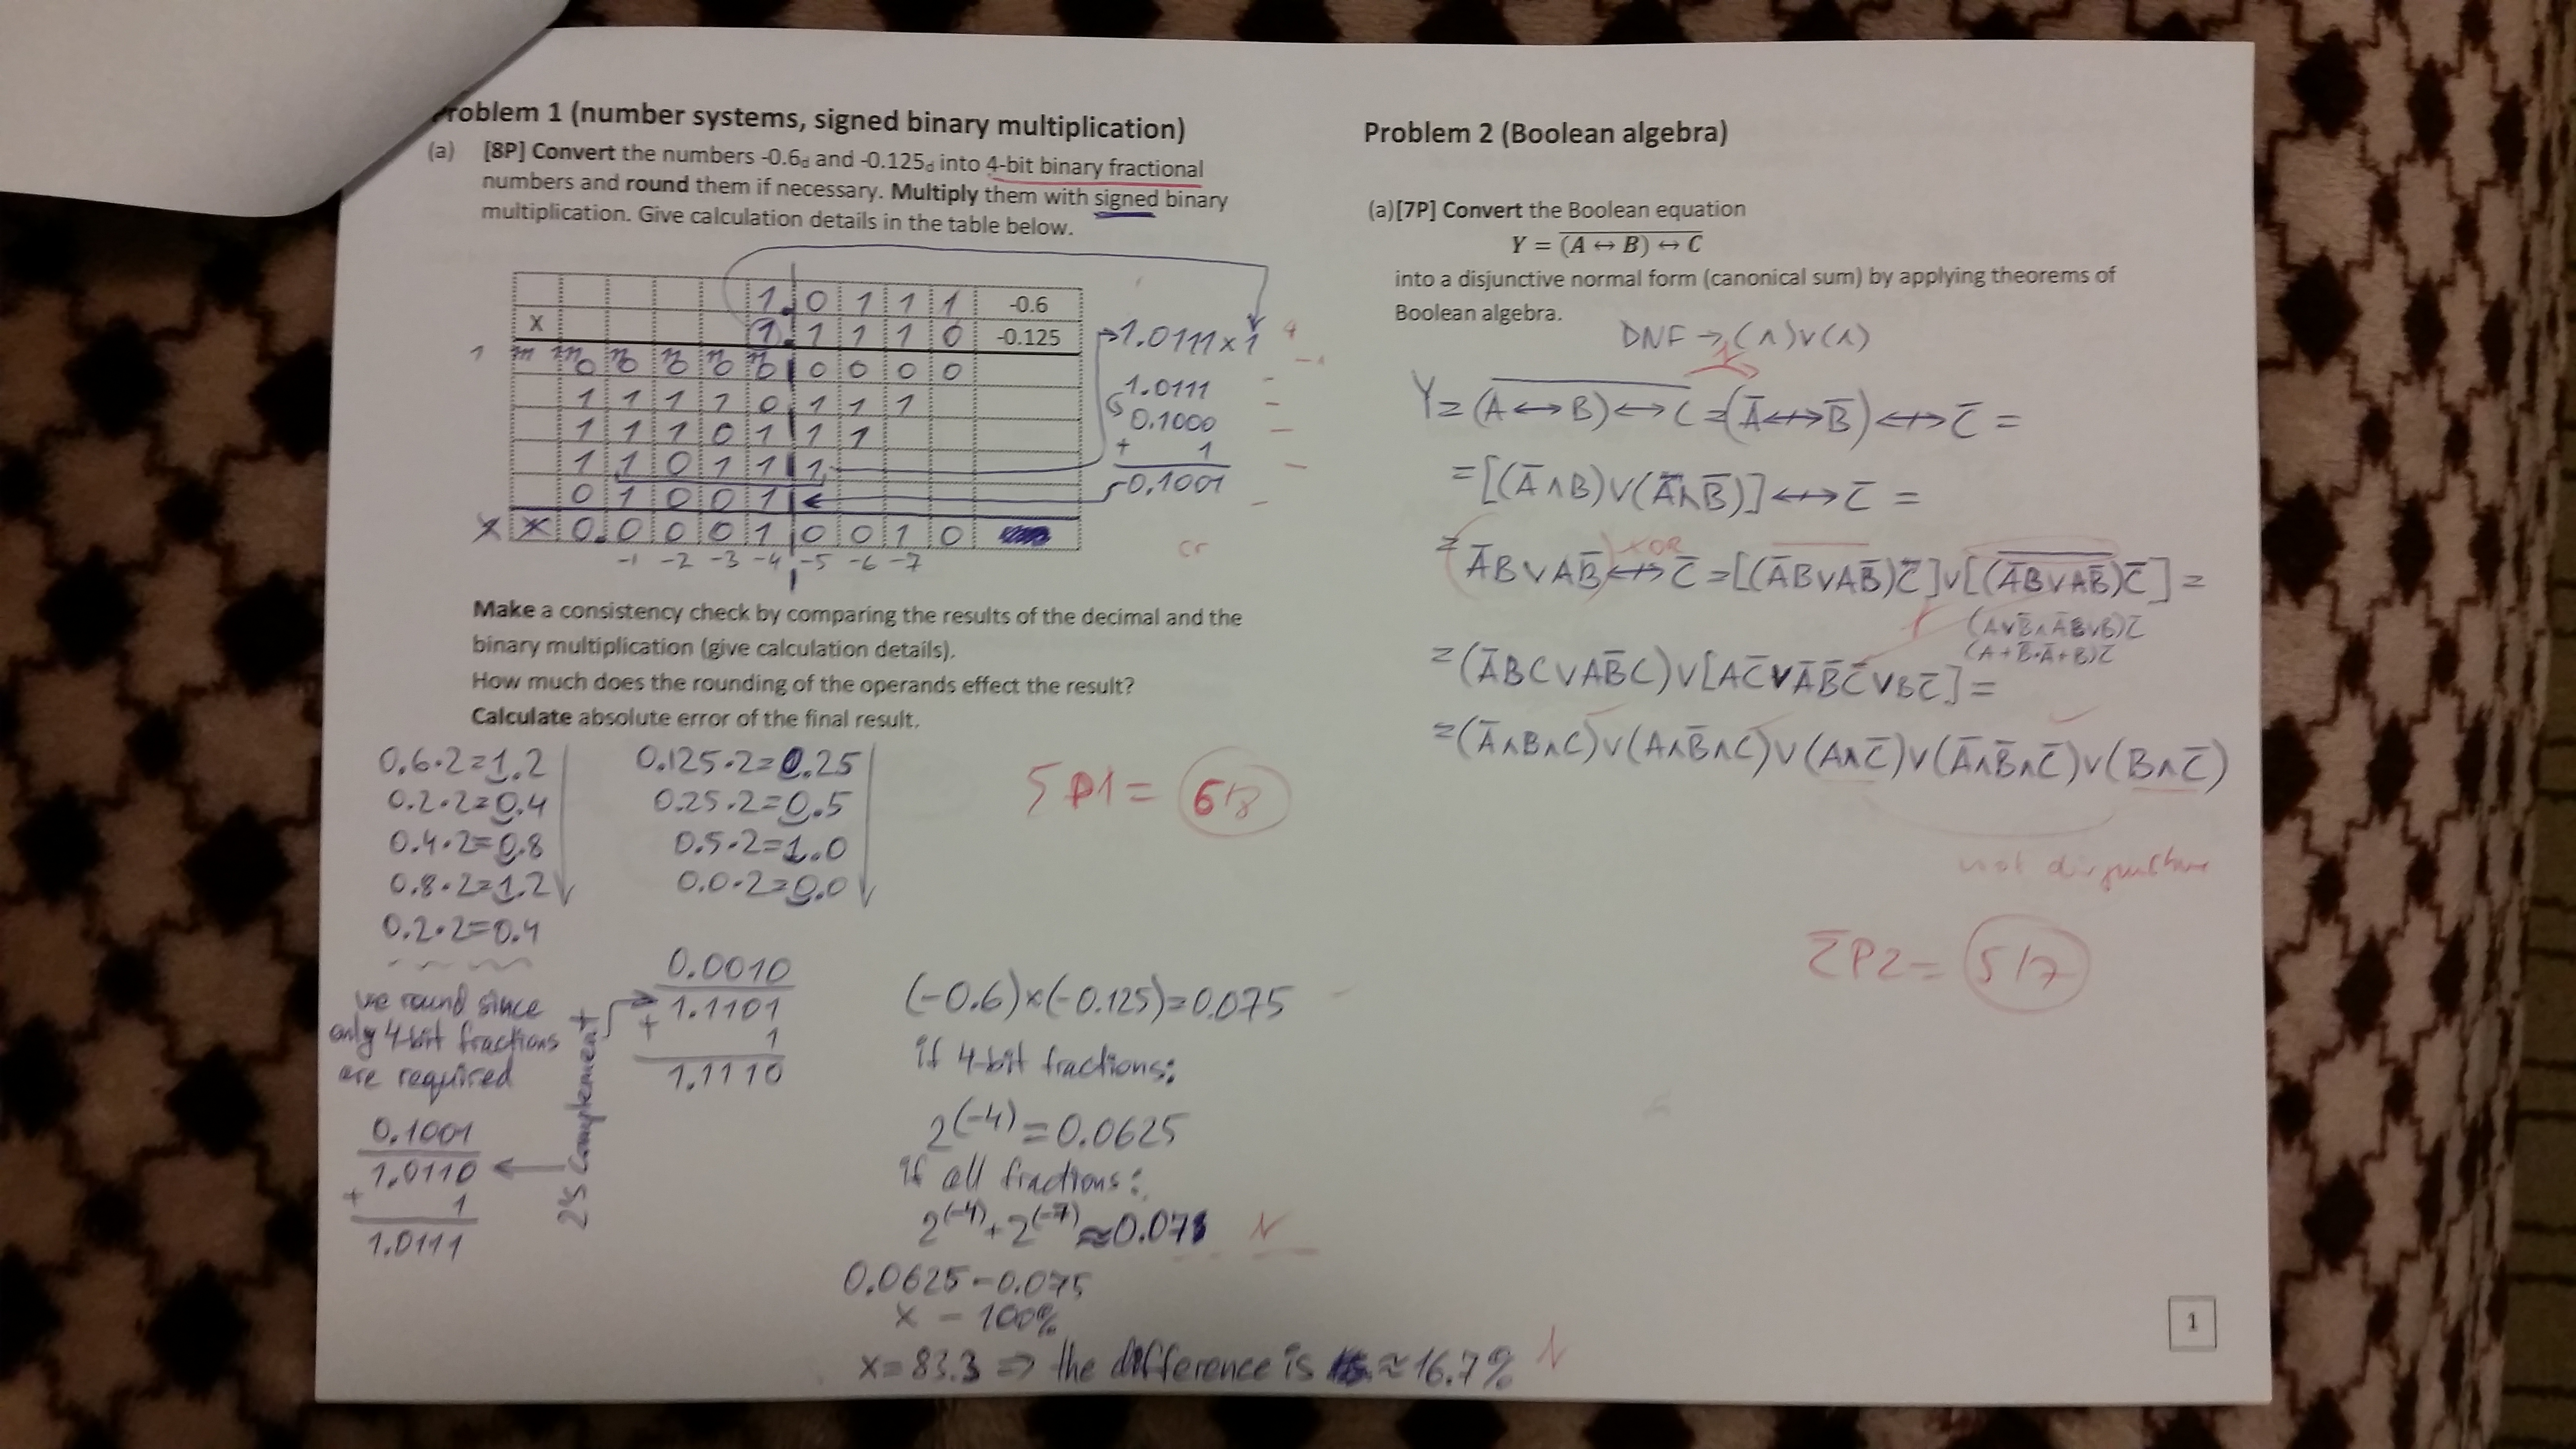 Problem 1 (number systems, signed binary multiplication)
(a) [8P] Convert the numbers -0.6d and -0.125d into 4-bit binary fractional
numbers and round them if necessary. Multiply them with signed binary
multiplication. Give calculation details in the table below.
1. 0 1 1 1 -0.6
x 1. 1 1 1 0 -0.125
0 0 0 0 0 0 0 0 0
1 1 1 1 0 1 1 1
1 1 1 0 1 1 1
1 1 0 1 1 1
0 1 0 0 1
x x 0. 0 0 0 1 0 0 1 0
-1 -2 -3 -4 -5 -6 -7
1.0111 x 1
1.0111
0.1000
+ 1
0.1001
Make a consistency check by comparing the results of the decimal and the
binary multiplication (give calculation details).
How much does the rounding of the operands effect the result?
Calculate absolute error of the final result.
0.6·2=1.2
0.2·2=0.4
0.4·2=0.8
0.8·2=1.2
0.2·2=0.4
we round since
only 4-bit fractions
are required
0.1001
1.0110
+ 1
1.0111
2's complement
0.125·2=0.25
0.25·2=0.5
0.5·2=1.0
0.0·2=0.0
0.0010
1.1101
+ 1
1.1110
Σ P1 = 6/8
(-0.6)×(-0.125)=0.075
if 4-bit fractions:
2^(-4) = 0.0625
if all fractions:
2^(-4) + 2^(-7) ≈ 0.071
0.0625 - 0.075
x - 100%
x = 83.3 => the difference is ≈ 16.7%
Problem 2 (Boolean algebra)
(a)[7P] Convert the Boolean equation
Y = \overline{(A ↔ B) ↔ C}
into a disjunctive normal form (canonical sum) by applying theorems of
Boolean algebra.
DNF → (∧)∨(∧)
Y = \overline{(A ↔ B) ↔ C} = (Ā ↮ B̄) ↮ C̄ =
= [(Ā∧B)∨(A∧B̄)] ↮ C̄ =
= ĀB∨AB̄ ↮ C̄ = [(ĀB∨AB̄)C]∨[(\overline{ĀB∨AB̄})C̄] =
XOR
(A∨B̄∧Ā∨B)C̄
(A+B̄·Ā+B)C̄
= (ĀBC∨AB̄C)∨[AC̄∨ĀB̄C̄∨BC̄] =
= (Ā∧B∧C)∨(A∧B̄∧C)∨(A∧C̄)∨(Ā∧B̄∧C̄)∨(B∧C̄)
not disjunctive
Σ P2 = 5/7
1